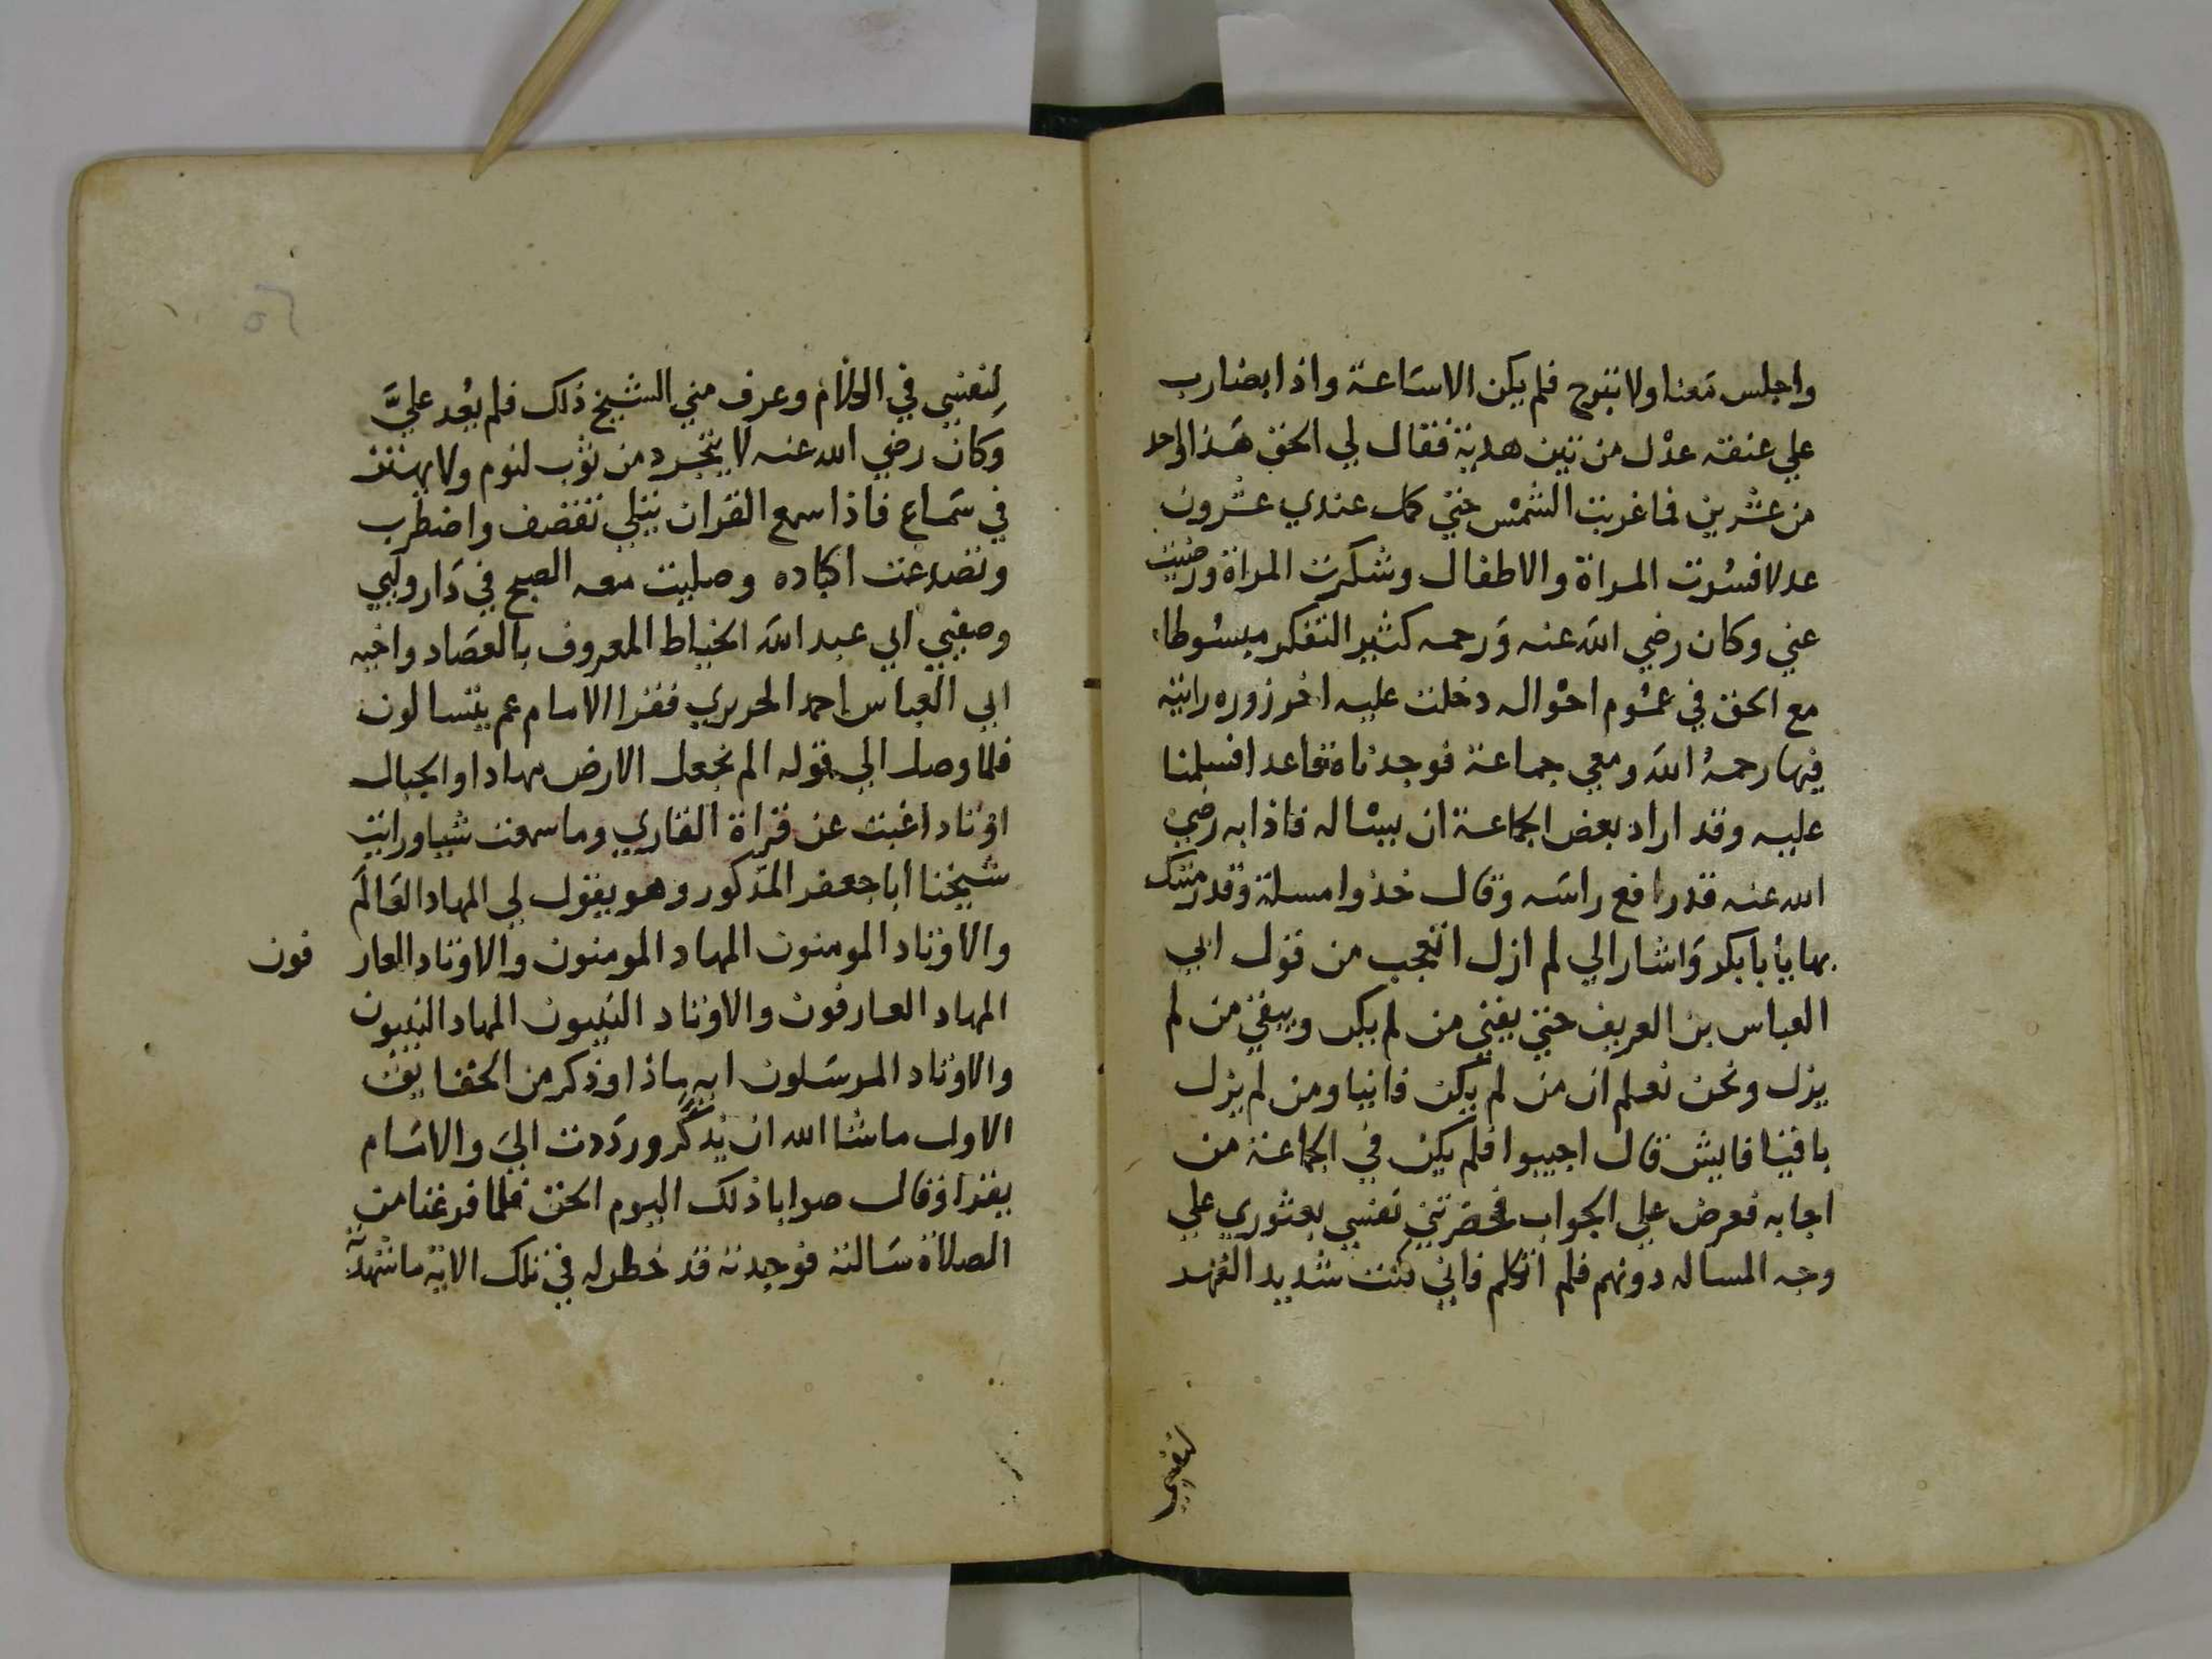 واجلس معنا ولا تبرح فلم يكن الا ساعة واذا بضارب
علي عنقه عدل من تبن هدية فقال لي الحق هذا واحد
من عشرين فما غربت الشمس حتي كمل عندي عشرون
عدلا فسرت المراة والاطفال وشكرت المراة ورضيت
عني وكان رضي الله عنه ورحمه كثير التفكر مبسوطا
مع الحق في عموم احواله دخلت عليه اخر زوره رايته
فيها رحمه الله ومعي جماعة فوجدناه قاعدا فسلمنا
عليه وقد اراد بعض الجماعة ان يساله فاذا به رضي
الله عنه قد رافع راسه وقال خذوا مسلة وقد رميتك
بها يأبا بكر واشار الي لم ازل اتعجب من قول ابي
العباس بن العريف حتي يفني من لم يكن ويبقي من لم
يزل ونحن نعلم ان من لم يكن فانيا ومن لم يزل
باقيا فايش قال اجيبوا فلم يكن في الجماعة من
اجابه فعرض علي الجواب فحضرتني نفسي بعثوري علي
وجه المساله دونهم فلم اتكلم فاني كنت شديد القهد
لنفسي
لنفسي في الكلام وعرف مني الشيخ ذلك فلم يعد عليَّ
وكان رضي الله عنه لا يتجرد من ثوب لنوم ولا يهتز
في سماع فاذا سمع القران يتلي تقصف واضطرب
وتصدعت اكباده وصليت معه الصبح في دار ولبي
وصفيي ابي عبد الله الخياط المعروف بالعصاد واخيه
ابي العباس احمد الحريري فقرا الامام عم يتسالون
فلما وصل الي قوله الم نجعل الارض مهادا والجبال
اوتادا غبت عن قراة القاري وما سمعت شيا ورايت
شيخنا ابا جعفر المذكور وهو يقول لي المهاد العالم
والاوتاد المومنون المهاد المومنون والاوتاد العارفون
المهاد العارفون والاوتاد النبيون المهاد النبيون
والاوتاد المرسلون ايه ماذا وذكر من الحقايق
الاول ما شا الله ان يذكر ورددت الي والامام
يقرا وقال صوابا ذلك اليوم الحق فلما فرغنا من
الصلاة سالته فوجدته قد خطر له في تلك الاية ما شهدته